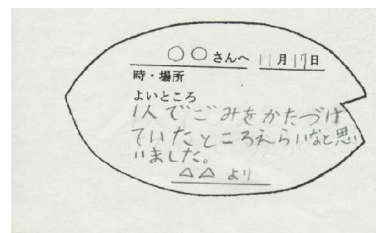 ○○さんへ 11月17日
時・場所
よいところ
1人でごみをかたづけ
ていたところえらいなと思い
いました。
△△より